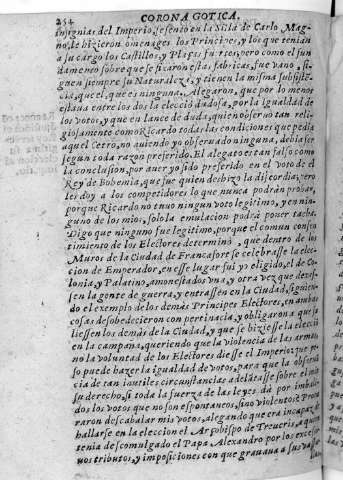 254 CORONA GOTICA.
insignias del Imperio, se sento en la Silla de Carlo Mag-
no, le hizieron omenages los Principes, y los que tenian
a su cargo los Castillos, y Plaças fuertes, pero como el fun
damento sobre que se fixaron estas fabricas, fue vano, si-
guen siempre su Naturaleza, y tienen la misma subsistē-
cia, que el, que es ninguna. Alegaron, que por lo menos
estaua entre los dos la eleccion dudosa, por la igualdad de
los votos, y que en lance de duda, quien obseruo tan reli-
giosamente como Ricardo todas las condiciones que pedia
aquel Cetro, no auiendo yo obseruado ninguna, debia ser
segun toda razon preferido. El alegato es tan falso como
la conclusion, por auer yo sido preferido en el voto de el
Rey de Bohemia, que fue quien deshizo la discordia; pero
les doy a los competidores lo que nunca podràn probar,
porque Ricardo no tuuo ningun voto legitimo, y en nin-
guno de los mios, sola la emulacion podrà poner tacha.
Digo que ninguno fue legitimo, porque el comun consen
timiento de los Electores determinò, que dentro de los
Muros de la Ciudad de Francafort se celebrasse la elec-
cion de Emperador, en esse lugar fui yo eligido, el de Co-
lonia, y Palatino, amonestados vna, y otra vez que dexas-
sen la gente de guerra, y entrassen en la Ciudad, siguien-
do el exemplo de los demàs Principes Electores, en ambas
cosas desobedecieron con pertinacia, y obligaron a que sa
liessen los demàs de la Ciudad, y que se hiziesse la elecciō
en la campaña, queriendo que la violencia de las armas
no la voluntad de los Electores diesse el Imperio: que pe-
so puede hazer la igualdad de votos, para que la obseruā
cia de tan inutiles circunstancias adelātasse sobre el mio
su derecho, si toda la fuerza de las leyes dà por imbali-
dos los votos que no son espontaneos, sino violentos: Procu
raron descabalar mis votos, alegando que era incapaz de
hallarse en la eleccion el Arçobispo de Treueris, a quien
tenia descomulgado el Papa Alexandro por los excessi-
uos tributos, y imposiciones con que grauaua a sus vassa-